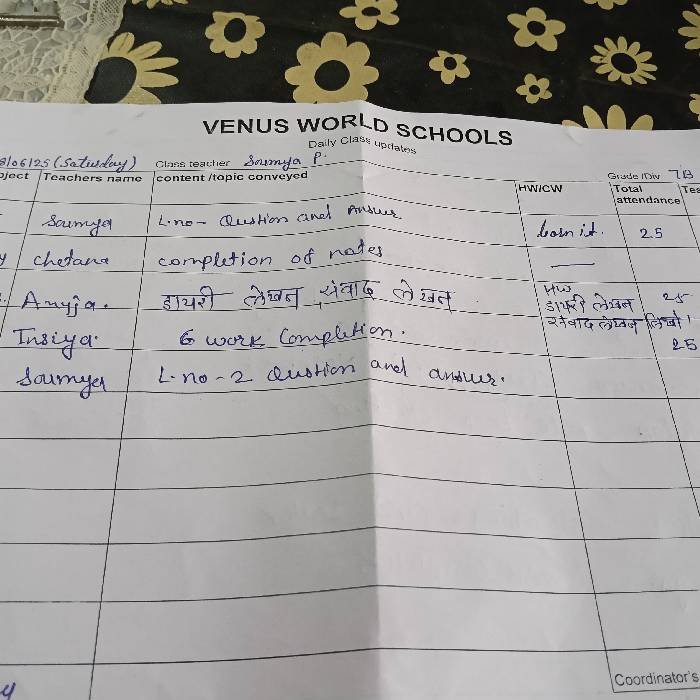 VENUS WORLD SCHOOLS
Daily Class updates
8/06/25 (Saturday) Class teacher Soumya P. Grade /Div 7B
bject Teachers name content /topic conveyed HW/CW Total attendance Tes
Soumya L.no- Qustion and Answer learn it. 25
y chetana completion of notes —
Anuja. डायरी लेखन, संवाद लेखन HW डायरी लेखन संवाद लेखन लिखो। 25
Insiya. G work Completion. 25
Soumya L.no-2 Qustion and answer.
Coordinator's
y